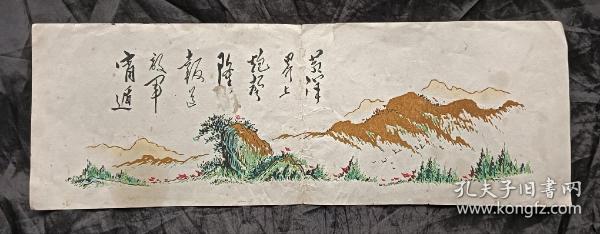 黄洋
界上
炮声
隆
报道
敌军
宵遁
孔夫子旧书网
www.kongfz.com